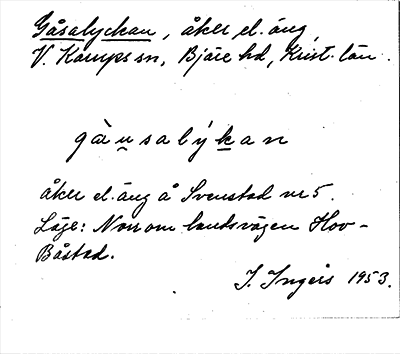 Gåsalyckan, åker el. äng,
V. Karups sn, Bjäre hd, Krist. län.
gàu̲salýk̲an
åker el. äng å Svenstad nr 5.
Läge: Norr om landsvägen Hov-
Båstad.
I. Ingers 1953.